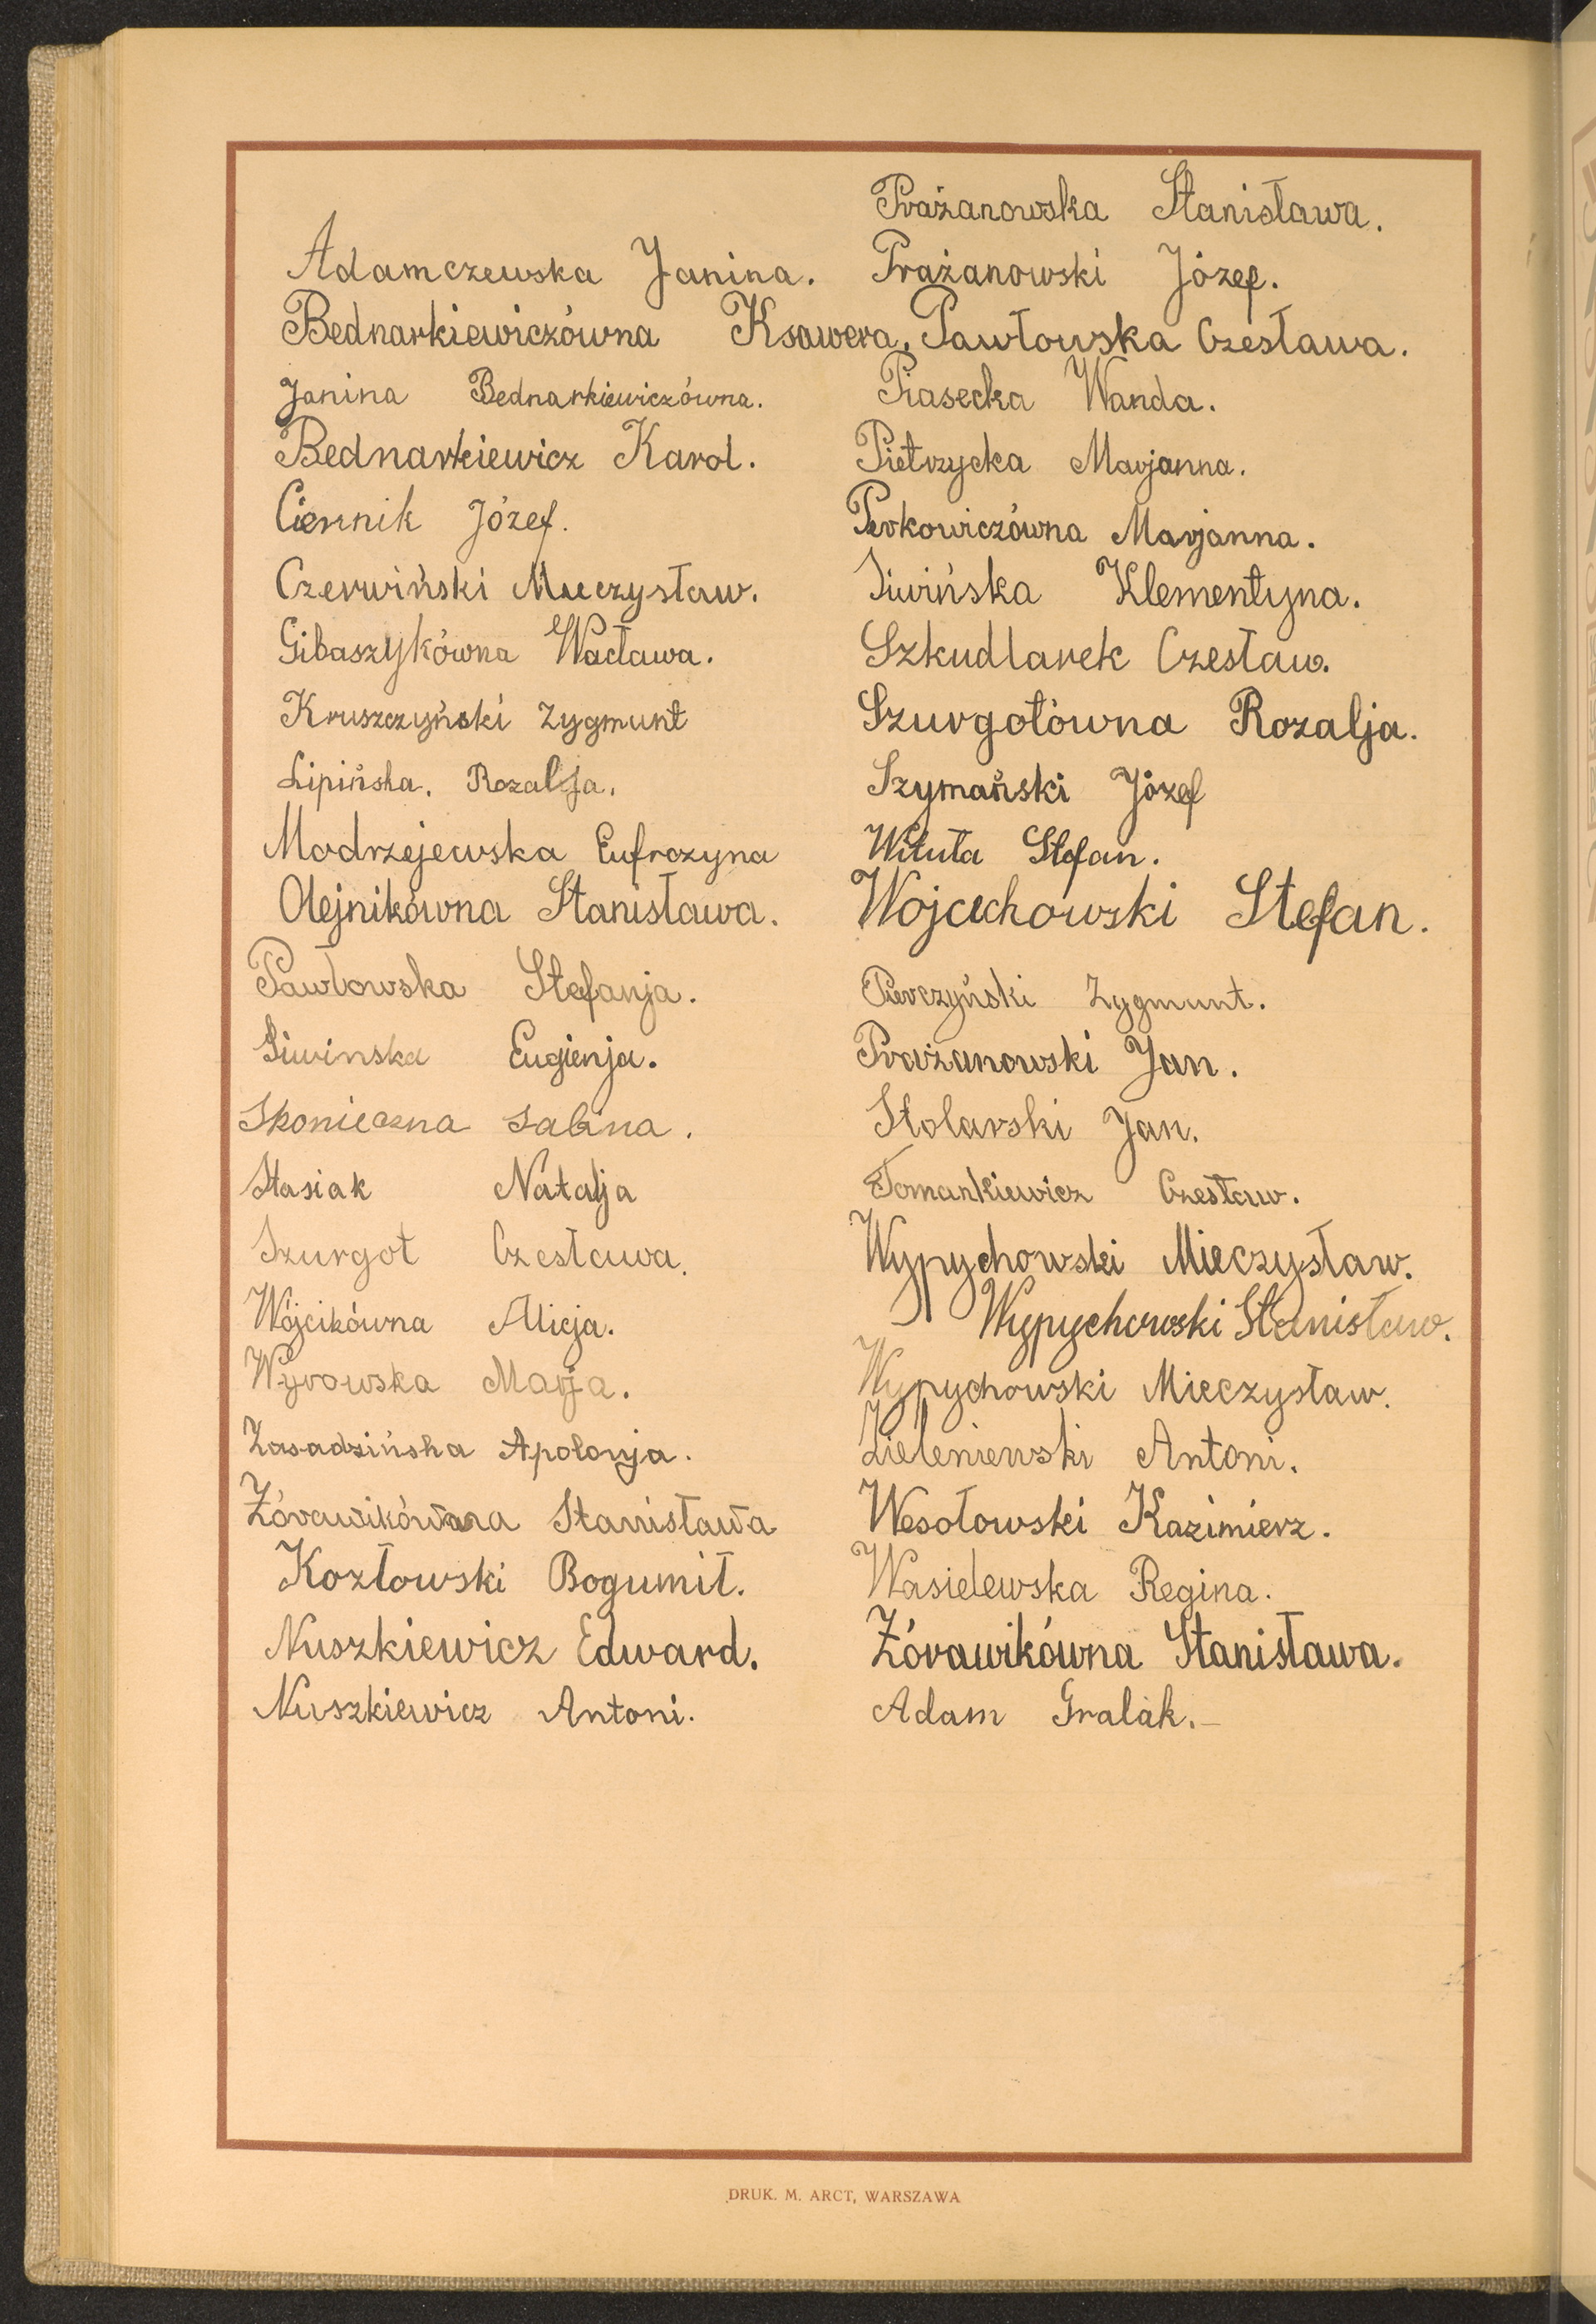 Adamczewska Janina.
Bednarkiewiczówna Ksawera.
Janina Bednarkiewiczówna.
Bednarkiewicz Karol.
Ciernik Józef.
Czerwiński Mieczysław.
Gibaszykówna Wacława.
Kruszczyński Zygmunt
Lipińska. Rozalja.
Modrzejewska Eufrozyna
Olejnikówna Stanisława.
Pawłowska Stefanja.
Siwinska Eugienja.
Skonieczna Sabina.
Stasiak Natalja
Szurgot Czesława.
Wójcikówna Alicja.
Wyrowska Marja.
Zasadzińska Apolonja.
Żórawikówna Stanisława
Kozłowski Bogumił.
Nuszkiewicz Edward.
Nuszkiewicz Antoni.
Prażanowska Stanisława.
Prażanowski Józef.
Pawłowska Czesława.
Piasecka Wanda.
Pietrzycka Marjanna.
Perkowiczówna Marjanna.
Siwińska Klementyna.
Szkudlarek Czesław.
Szurgotówna Rozalja.
Szymański Józef
Wituła Stefan.
Wojciechowski Stefan.
Pierczyński Zygmunt.
Prażanowski Jan.
Stolarski Jan.
Tomankiewicz Czesław.
Wypychowski Mieczysław.
Wypychowski Stanisław.
Wypychowski Mieczysław.
Zieleniewski Antoni.
Wesołowski Kazimierz.
Wasielewska Regina.
Żórawikówna Stanisława.
Adam Gralak.-
DRUK. M. ARCT, WARSZAWA